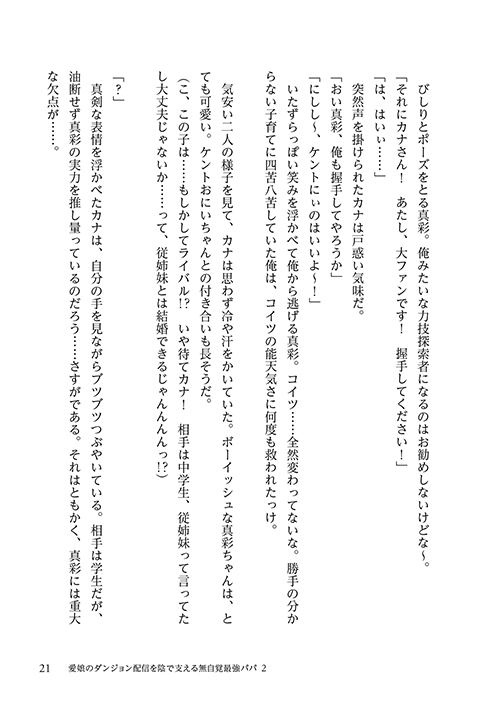 びしりとポーズをとる真彩。俺みたいな力技探索者になるのはお勧めしないけどな～。
「それにカナさん！　あたし、大ファンです！　握手してください！」
「は、はいぃ……」
突然声を掛けられたカナは戸惑い気味だ。
「おい真彩、俺も握手してやろうか」
「にしし～、ケントにぃのはいいよ～！」
いたずらっぽい笑みを浮かべて俺から逃げる真彩。コイツ……全然変わってないな。勝手の分か
らない子育てに四苦八苦していた俺は、コイツの能天気さに何度も救われたっけ。
気安い二人の様子を見て、カナは思わず冷や汗をかいていた。ボーイッシュな真彩ちゃんは、と
ても可愛い。ケントおにいちゃんとの付き合いも長そうだ。
（こ、この子は……もしかしてライバル!?　いや待てカナ！　相手は中学生、従姉妹って言ってた
し大丈夫じゃないか……って、従姉妹とは結婚できるじゃんんんんっ!?）
「？」
真剣な表情を浮かべたカナは、自分の手を見ながらブツブツつぶやいている。相手は学生だが、
油断せず真彩の実力を推し量っているのだろう……さすがである。それはともかく、真彩には重大
な欠点が……。
21　愛娘のダンジョン配信を陰で支える無自覚最強パパ 2